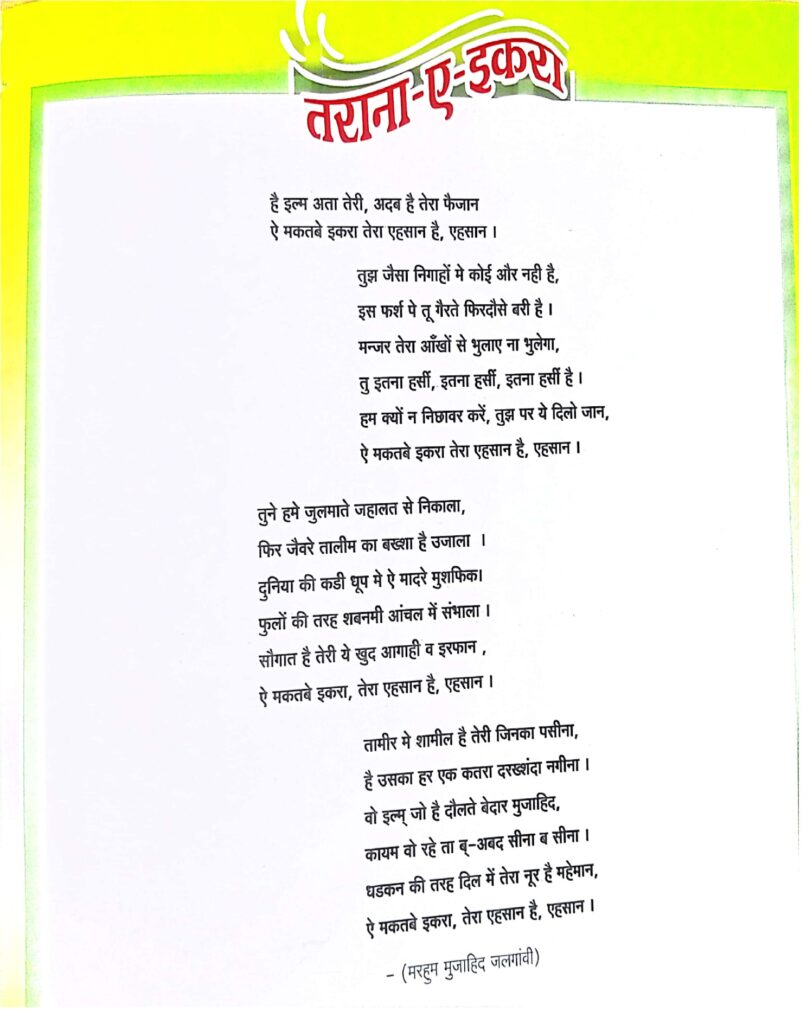 तराना-ए-इकरा
है इल्म अता तेरी, अदब है तेरा फैजान
ऐ मकतबे इकरा तेरा एहसान है, एहसान ।
तुझ जैसा निगाहों मे कोई और नही है,
इस फर्श पे तू गैरते फिरदौसे बरी है ।
मन्जर तेरा आँखों से भुलाए ना भुलेगा,
तु इतना हर्सी, इतना हर्सी, इतना हर्सी है ।
हम क्यों न निछावर करें, तुझ पर ये दिलो जान,
ऐ मकतबे इकरा तेरा एहसान है, एहसान ।
तुने हमे जुलमाते जहालत से निकाला,
फिर जैवरे तालीम का बख्शा है उजाला ।
दुनिया की कडी धूप मे ऐ मादरे मुशफिक।
फुलों की तरह शबनमी आंचल में संभाला ।
सौगात है तेरी ये खुद आगाही व इरफान ,
ऐ मकतबे इकरा, तेरा एहसान है, एहसान ।
तामीर मे शामील है तेरी जिनका पसीना,
है उसका हर एक कतरा दरख्शंदा नगीना ।
वो इल्म् जो है दौलते बेदार मुजाहिद,
कायम वो रहे ता ब्-अबद सीना ब सीना ।
धडकन की तरह दिल में तेरा नूर है महेमान,
ऐ मकतबे इकरा, तेरा एहसान है, एहसान ।
- (मरहुम मुजाहिद जलगांवी)